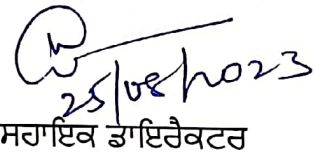 25/08/2023
ਸਹਾਇਕ ਡਾਇਰੈਕਟਰ